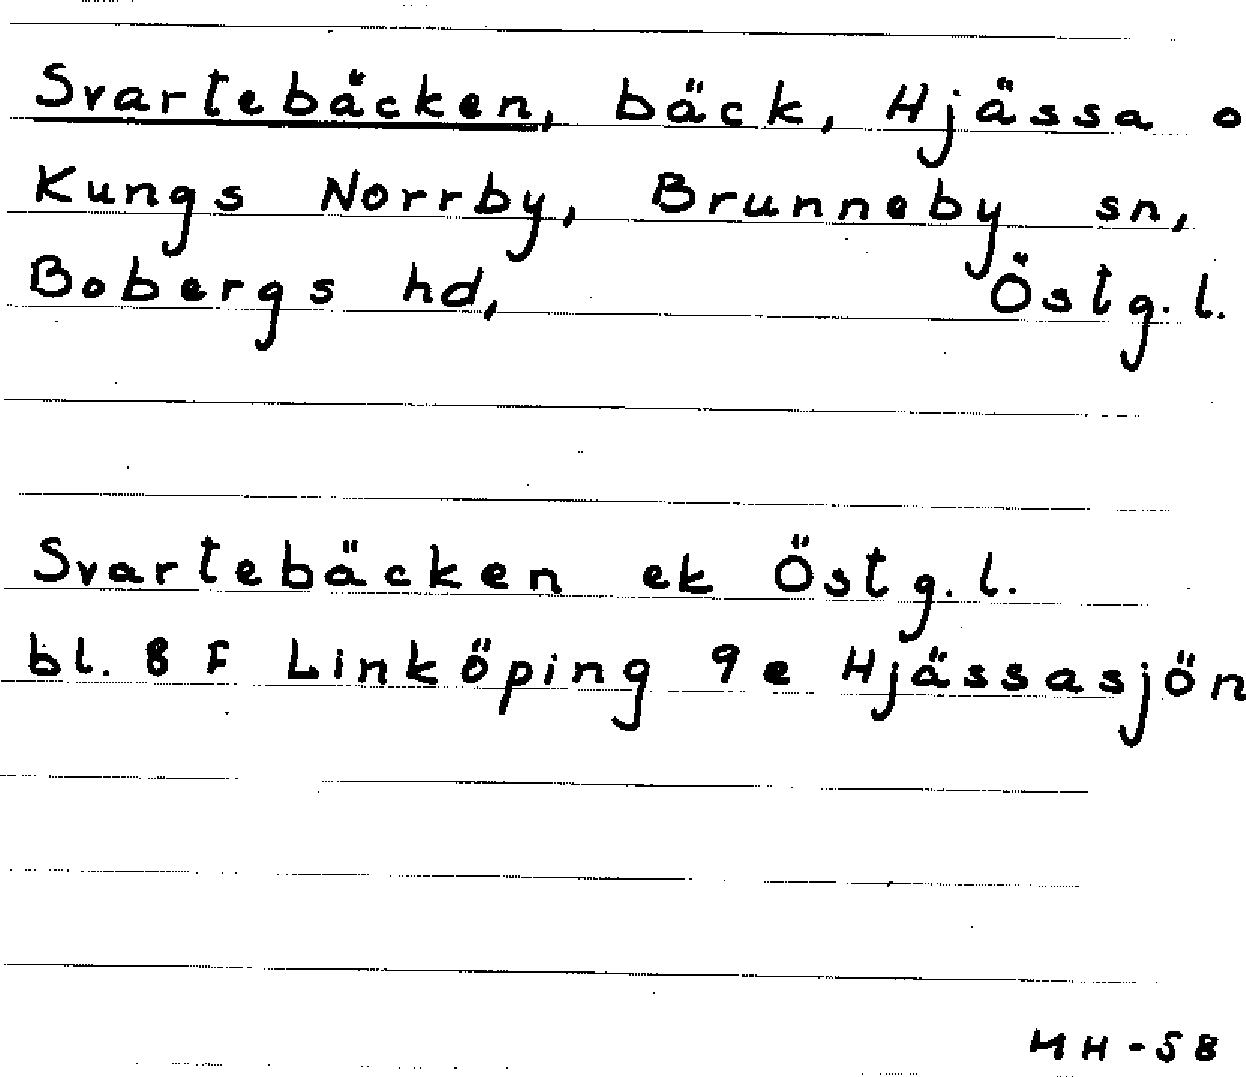 Svartebäcken, bäck, Hjässa o
Kungs Norrby, Brunneby sn,
Bobergs hd, Östg.l.
Svartebäcken ek Östg.l.
bl. 8 F Linköping 9e Hjässasjön
MH-58